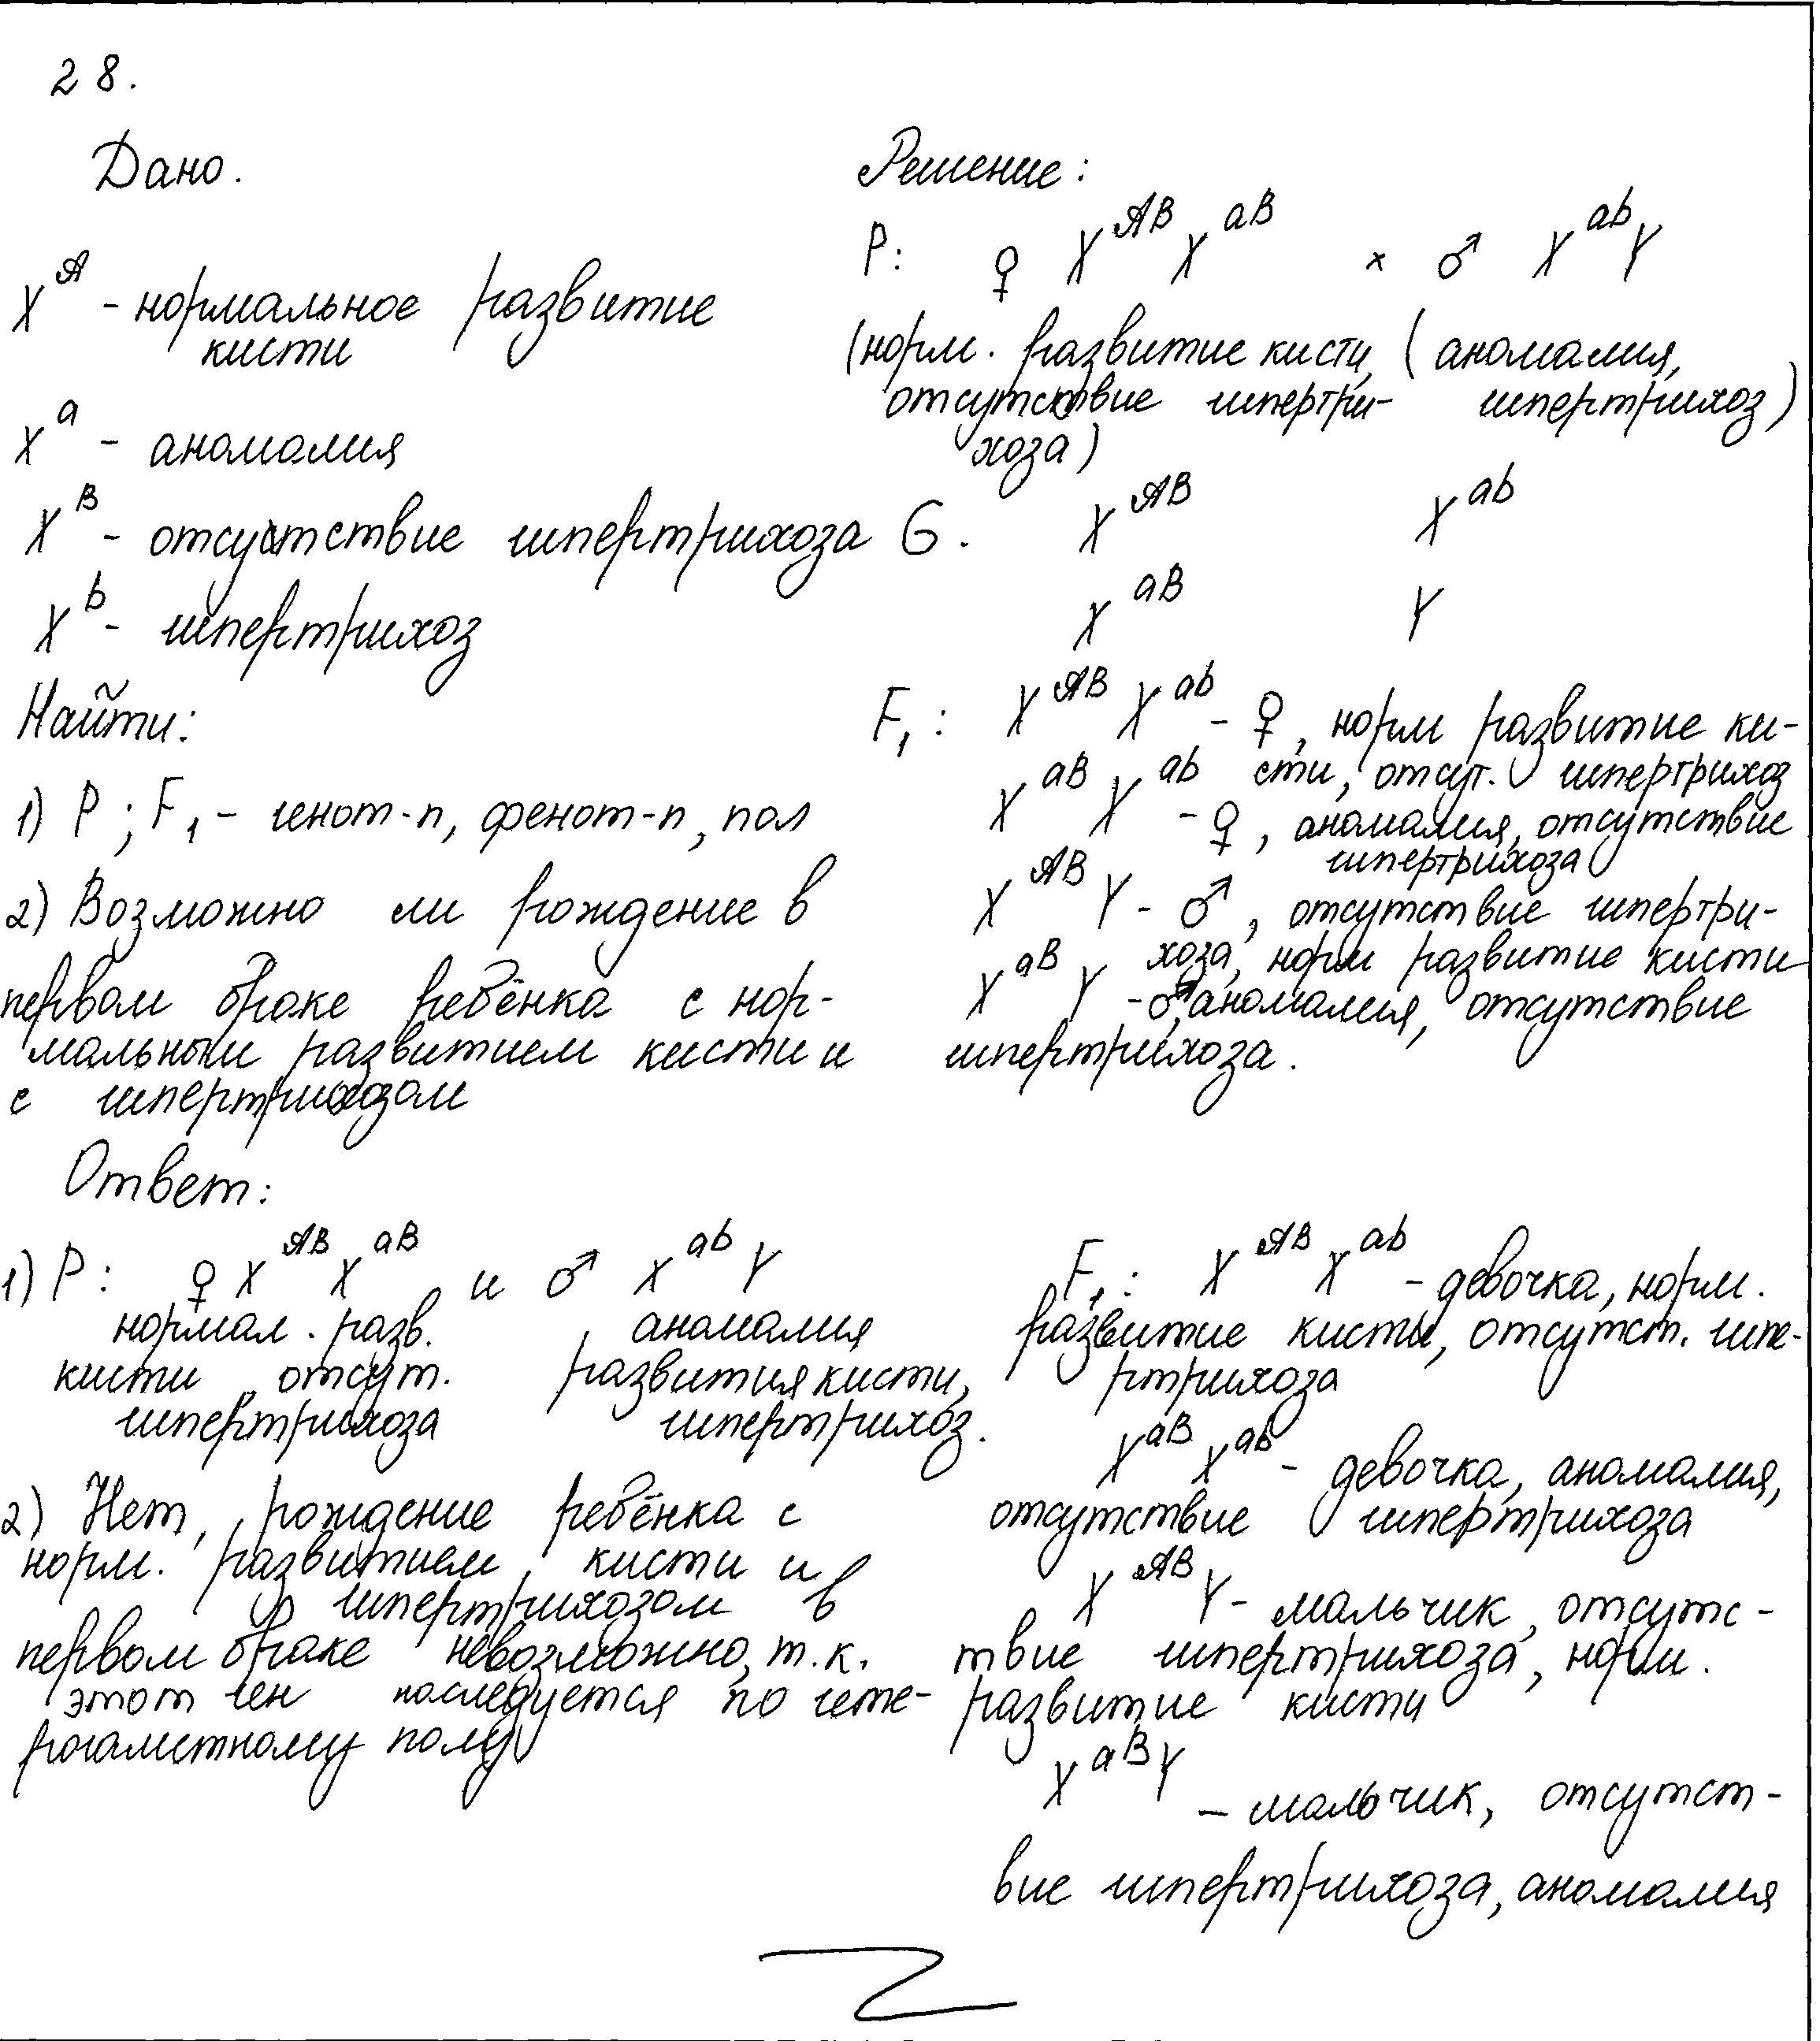 28.
Дано.
X^A - нормальное развитие
кисти
X^a - аномалия
X^B - отсутствие гипертрихоза
X^b - гипертрихоз
Найти:
1) P; F₁ - генот-п, фенот-п, пол
2) Возможно ли рождение в
первом браке ребёнка с нор-
мальным развитием кисти и
с гипертрихозом
Решение:
P: ♀ X^AB X^aB × ♂ X^ab Y
(норм. развитие кисти, (аномалия,
отсутствие гипертри- гипертрихоз)
хоза)
G. X^AB X^ab
X^aB Y
F₁: X^AB X^ab - ♀, норм развитие ки-
сти, отсут. гипертрихоз
X^aB X^ab - ♀, аномалия, отсутствие
гипертрихоза
X^AB Y - ♂, отсутствие гипертри-
хоза, норм развитие кисти
X^aB Y - ♂, аномалия, отсутствие
гипертрихоза.
Ответ:
1) P: ♀ X^AB X^aB и ♂ X^ab Y
нормал. разв. , аномалия
кисти, отсут. развития кисти,
гипертрихоза гипертрихоз.
2) Нет, рождение ребёнка с
норм. развитием кисти и
гипертрихозом в
первом браке невозможно, т.к.
этот ген наследуется по гете-
рогаметному полу
F₁: X^AB X^ab - девочка, норм.
развитие кисти, отсутст. гипе-
ртрихоза
X^aB X^ab - девочка, аномалия,
отсутствие гипертрихоза
X^AB Y - мальчик, отсутс-
твие гипертрихоза, норм.
развитие кисти
X^aB Y
- мальчик, отсутст-
вие гипертрихоза, аномалия